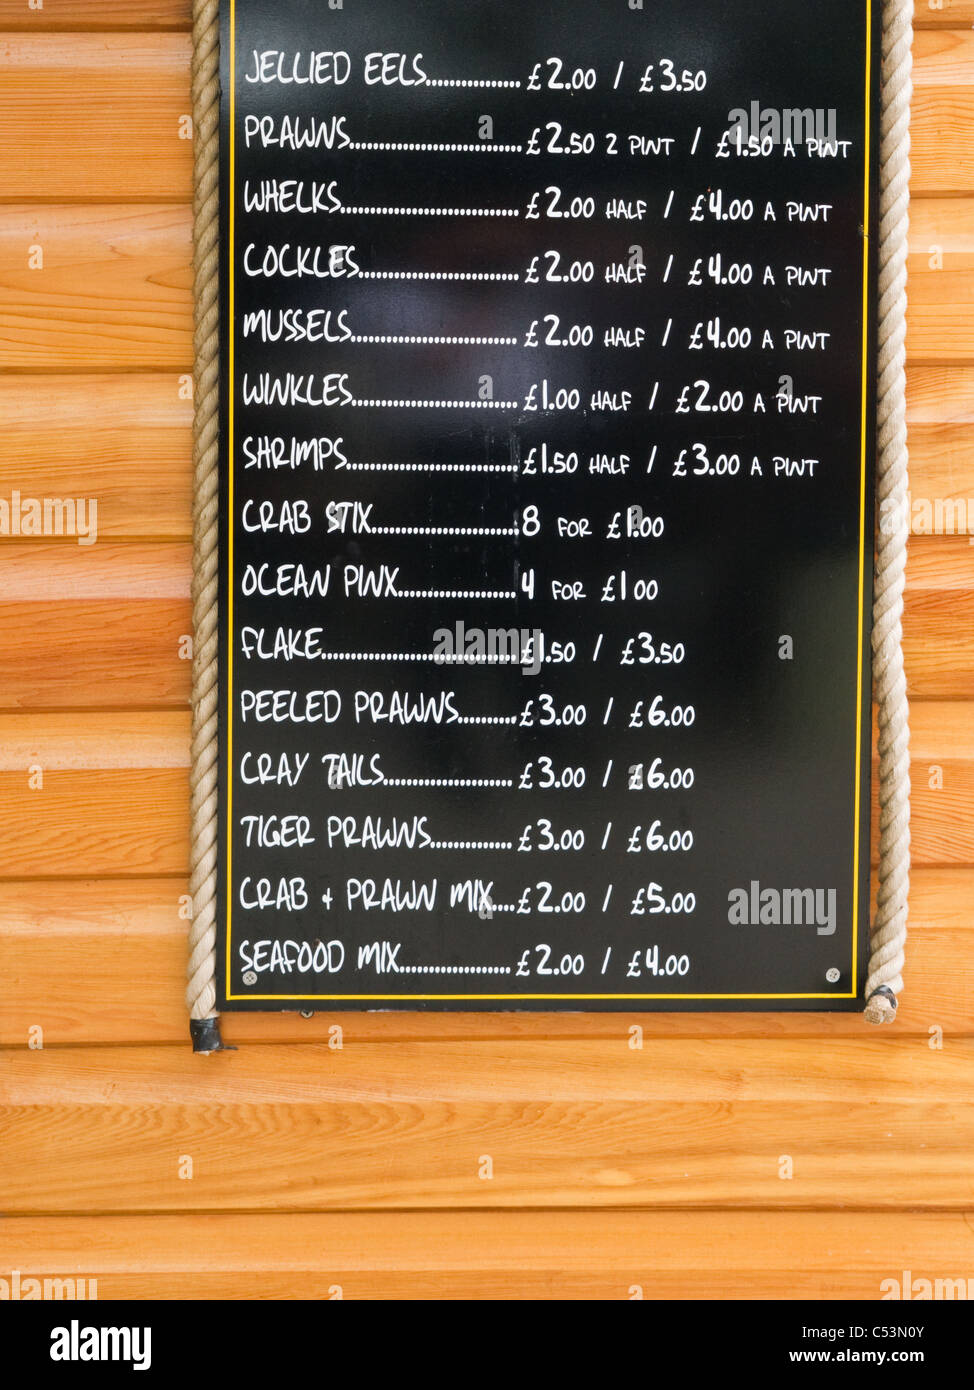 JELLIED EELS................£2.00 / £3.50
PRAWNS.............................£2.50 2 PINT / £1.50 A PINT
WHELKS..............................£2.00 HALF / £4.00 A PINT
COCKLES...........................£2.00 HALF / £4.00 A PINT
MUSSELS............................£2.00 HALF / £4.00 A PINT
WINKLES............................£1.00 HALF / £2.00 A PINT
SHRIMPS.............................£1.50 HALF / £3.00 A PINT
CRAB STIX.........................8 FOR £1.00
OCEAN PINX....................4 FOR £1 00
FLAKE.................................£1.50 / £3.50
PEELED PRAWNS..........£3.00 / £6.00
CRAY TAILS......................£3.00 / £6.00
TIGER PRAWNS..............£3.00 / £6.00
CRAB + PRAWN MIX....£2.00 / £5.00
SEAFOOD MIX...................£2.00 / £4.00
alamy
Image ID: C53N0Y
www.alamy.com